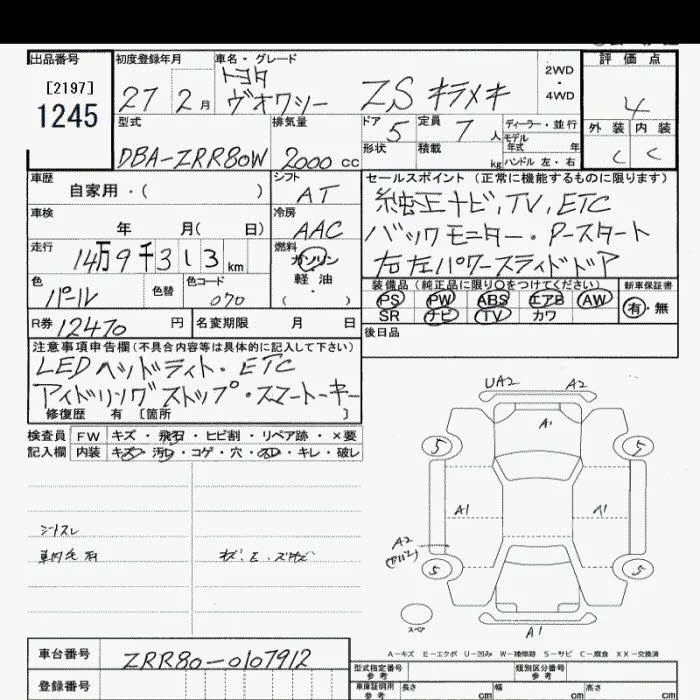 出品番号
[2197]
1245
初度登録年月
27 2月
車名・グレード
トヨタ
ヴオクシー ZS キラメキ
2WD
・
4WD
評価点
4
外装 内装
C C
型式
DBA-ZRR80W
排気量
2000 cc
ドア 5
定員 7 人
形状
積載 kg
ディーラー・並行
モデル年式 年
ハンドル 左・右
車歴
自家用・( )
シフト
AT
車検
年 月( 日)
冷房
AAC
走行
14万9千313 km
燃料
ガソリン
軽油
( ・ )
色
パール
色替
色コード
070
R券 12470 円
名変期限 月 日
セールスポイント (正常に機能するものに限ります)
純正ナビ,TV,ETC
バックモニター・Pースタート
右左パワースライドドア
装備品(純正品に限り○をつけてください)
PS PW ABS エアB AW
SR ナビ TV カワ
新車保証書
有・無
後日品
注意事項申告欄(不具合内容等は具体的に記入して下さい)
LEDヘッドライト・ETC
アイドリングストップ・スマートキー
修復歴 有 [箇所 ]
検査員 FW キズ・飛石・ヒビ割・リペア跡・×要
記入欄 内装 キズ・汚レ・コゲ・穴・スレ・キレ・破レ
シートスレ
UA2 A2
A1
5 5
A1 A1
A2
5 5
スペア
A1
A-キズ E-エクボ U-凹み W-補修跡 S-サビ C-腐食 XX-交換済
車台番号 ZRR80-0107912
登録番号
型式指定番号
参考
類別区分番号
参考
車庫証明用
参考
長さ cm 幅 cm 高さ cm